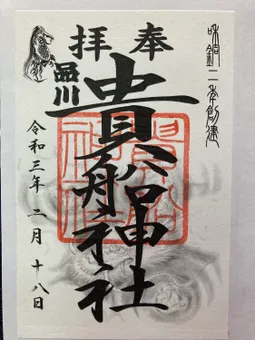 奉拝
品川
貴船神社
令和三年二月十八日
和銅二年創建